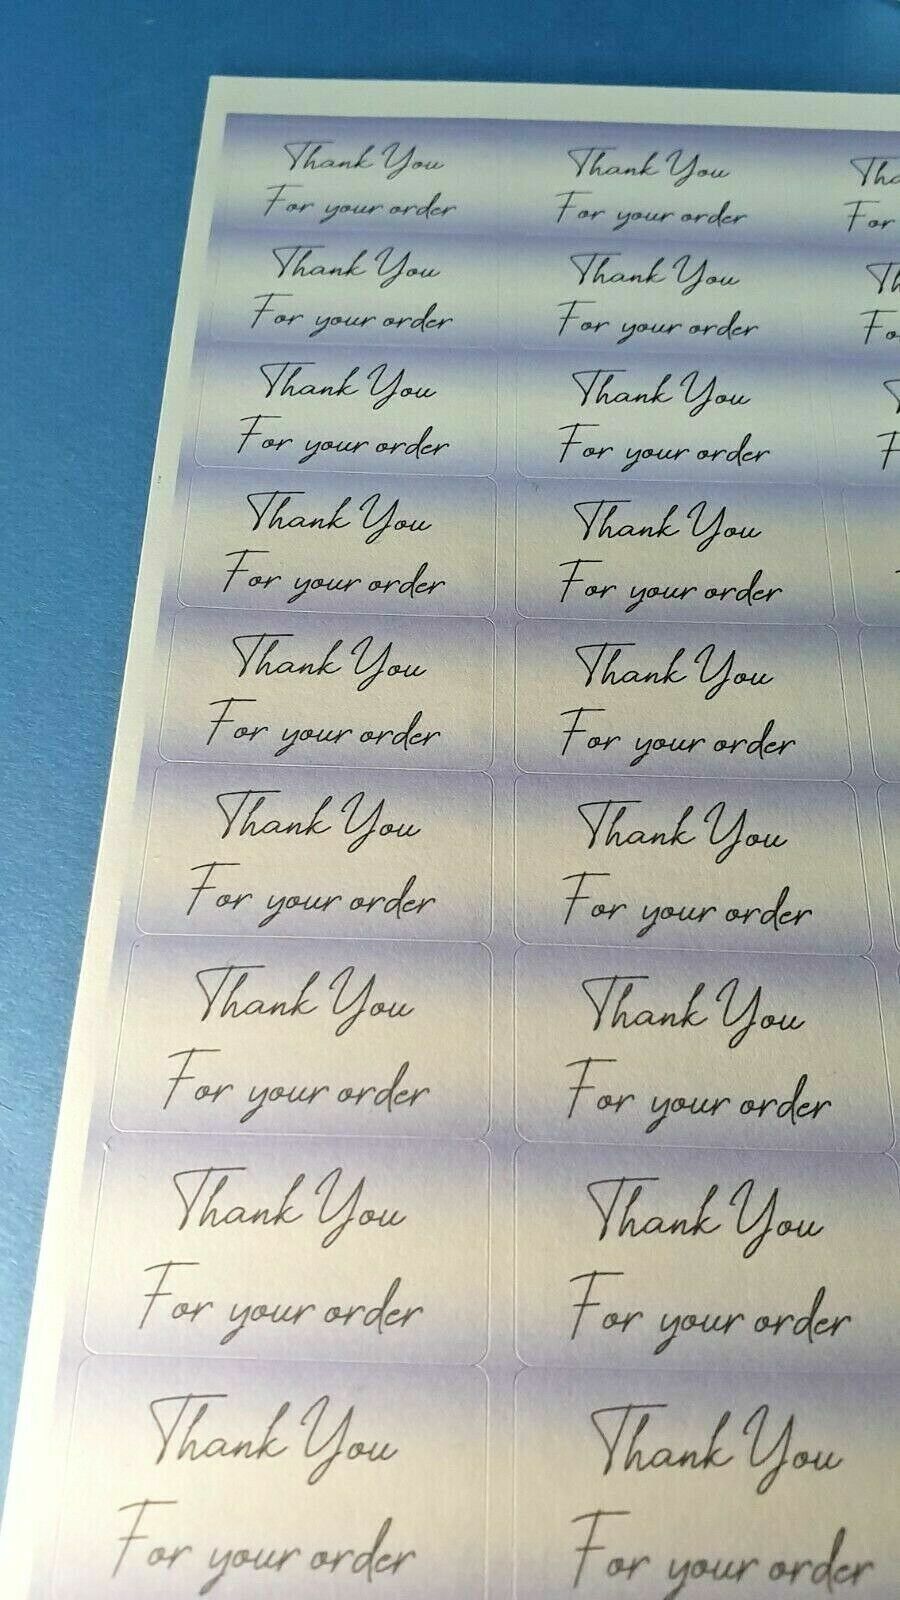 Thank You Thank You Tha
For your order For your order For
Thank You Thank You Th
For your order For your order Fo
Thank You Thank You
For your order For your order F
Thank You Thank You
For your order For your order
Thank You Thank You
For your order For your order
Thank You Thank You
For your order For your order
Thank You Thank You
For your order For your order
Thank You Thank You
For your order For your order
Thank You Thank You
For your order For your order